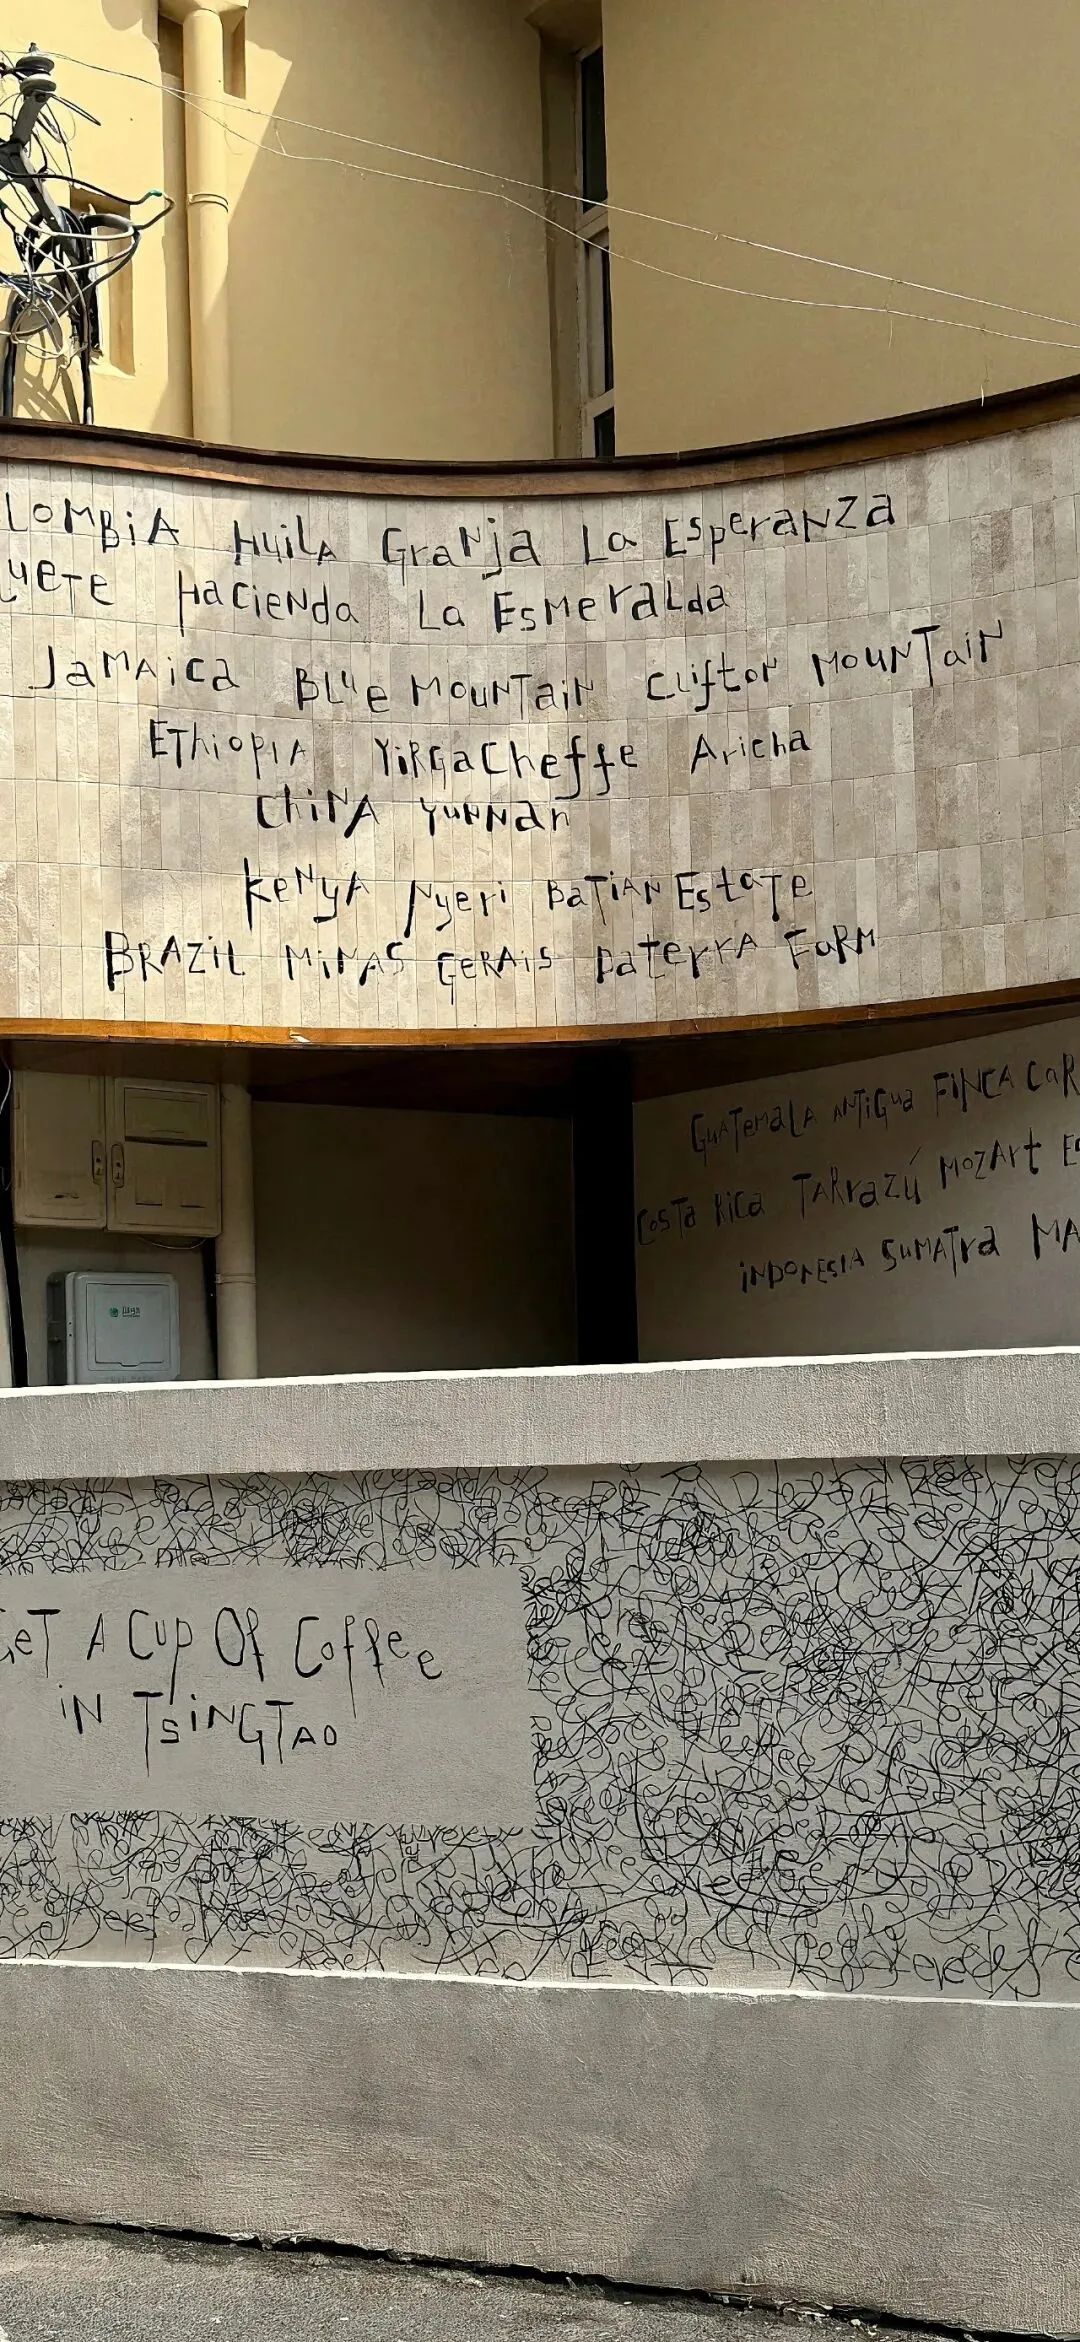 LOMBiA HuiLA GraNja La EsperaNZa
uete HacieNda La EsMeraLda
JaMAica BLue MOuNTaiN Clifton MOuNTaiN
EThiopiA YiRGaCheffe Aricha
ChiNA YuNNan
KeNyA Nyeri BaTiAN EstaTe
BRAZiL MiNAS GeRAiS DaTerrA FaRM
GuATeMaLA ANTiGua FiNCA CaR
CosTa RiCa TARrazú MozArt Es
iNDONESiA SuMATra MA
GeT A Cup Of Coffee
iN TsiNGTAO